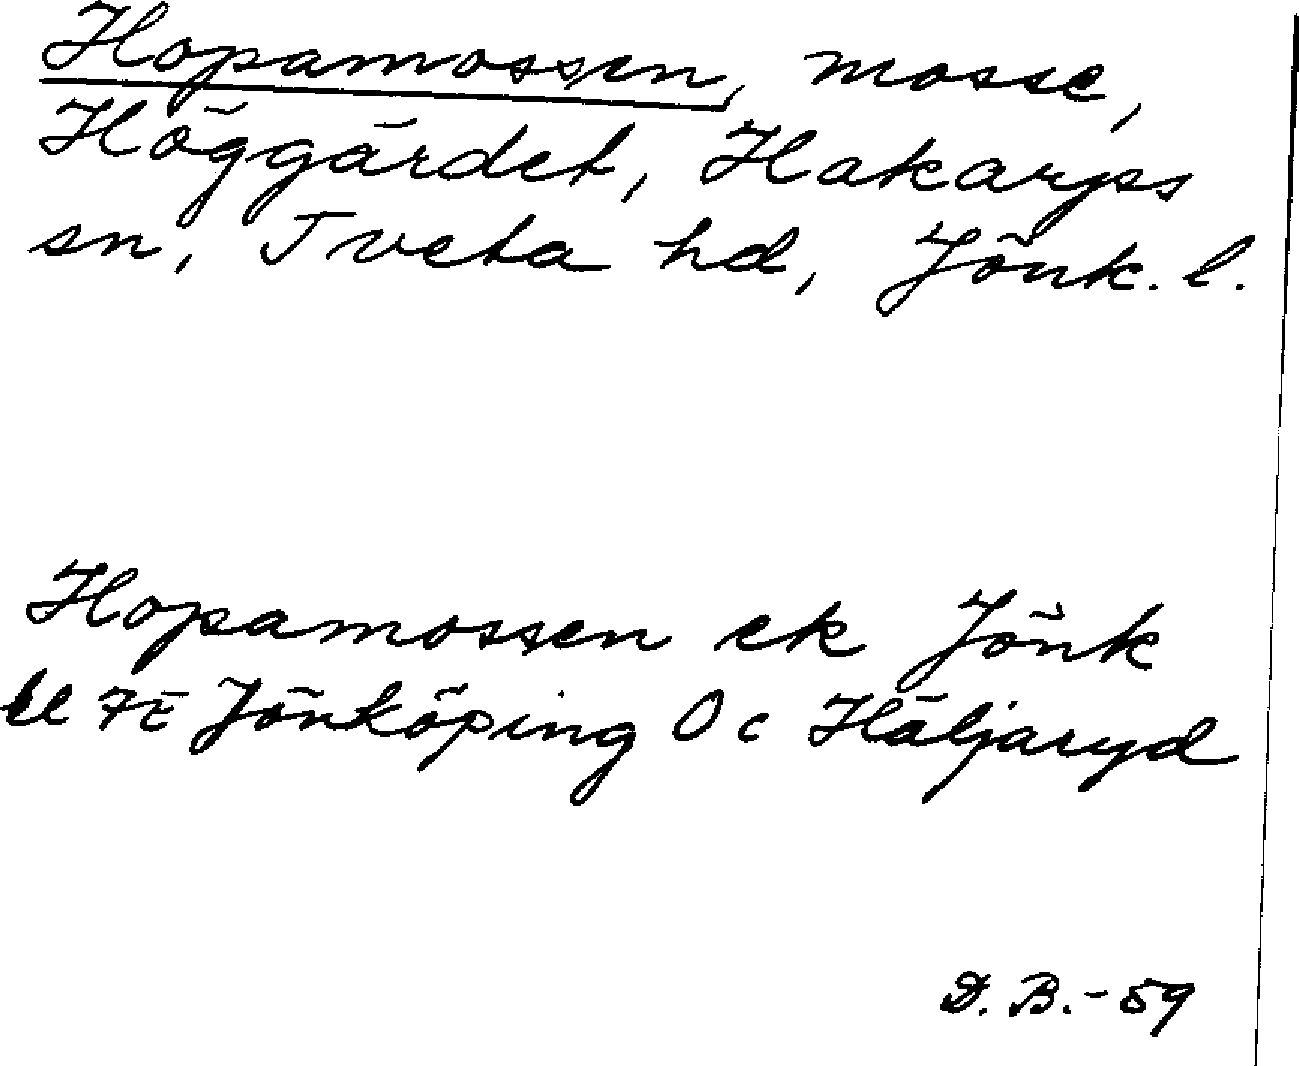 Hopamossen, mosse,
Höggärdet, Hakarps
sn, Tveta hd, Jönk. l.
Hopamossen ek Jönk
bl 7E Jönköping Oc Häljaryd
D. B. - 59